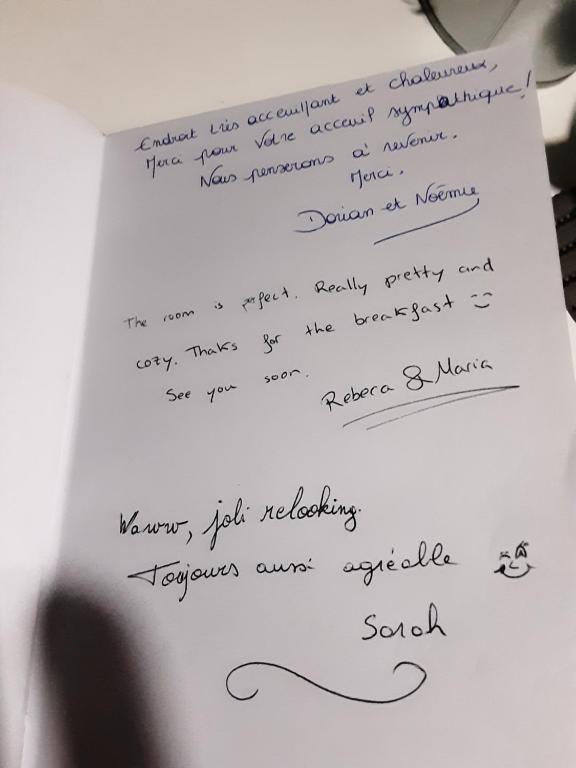 Endroit très acceuillant et chaleureux,
Merci pour Votre acceuil sympathique!
Nous penserons à revenir.
Merci.
Dorian et Noémie
The room is perfect. Really pretty and
cozy. Thaks for the breakfast :)
See you soon.
Rebeca & Maria
Wawww, joli relooking.
Toujours aussi agréable
Sarah